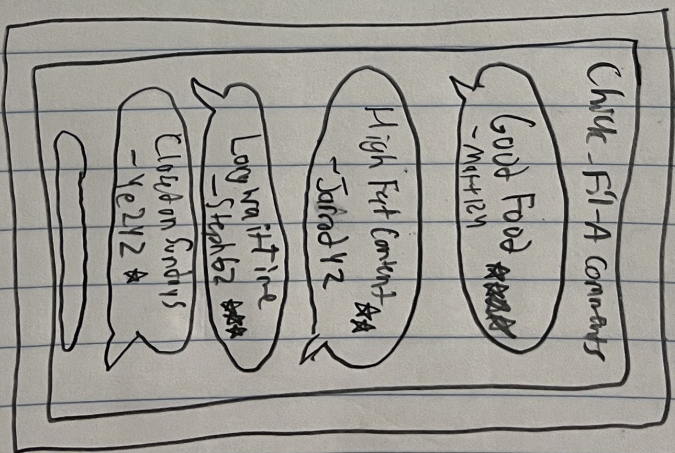 Chick-Fil-A Comments
Good Food
-Matt124 ★★★★★
High Fat Content
-Jarod42 ★★
Long wait time
-Steph62 ★★★
Closed on Sundays
-Ye242 ★